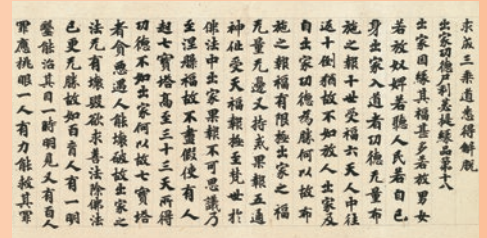 求成三乘道悉得解脫
出家功德尸利苾提緣品第十八
出家因緣其福甚多若放男女
若放奴婢若聽人民若自己
身出家入道者功德无量布
施之報十世受福六天人中往
返十倒猶故不如放人出家及
自出家功德為勝何以故布
施之報福有限極出家之福
无量无邊又持戒果報五通
神仙受天福報極至梵世於
佛法中出家果報不可思議乃
至涅槃福故不盡假使有人
起七寶塔高至三十三天所得
功德不如出家何以故七寶塔
者貪惡愚人能壞破故出家之
法无有壞毀欲求善法除佛法
已更无勝故如百盲人有一明
毉能治其目一時明見又有百人
罪應挑眼一人有力能救其罪